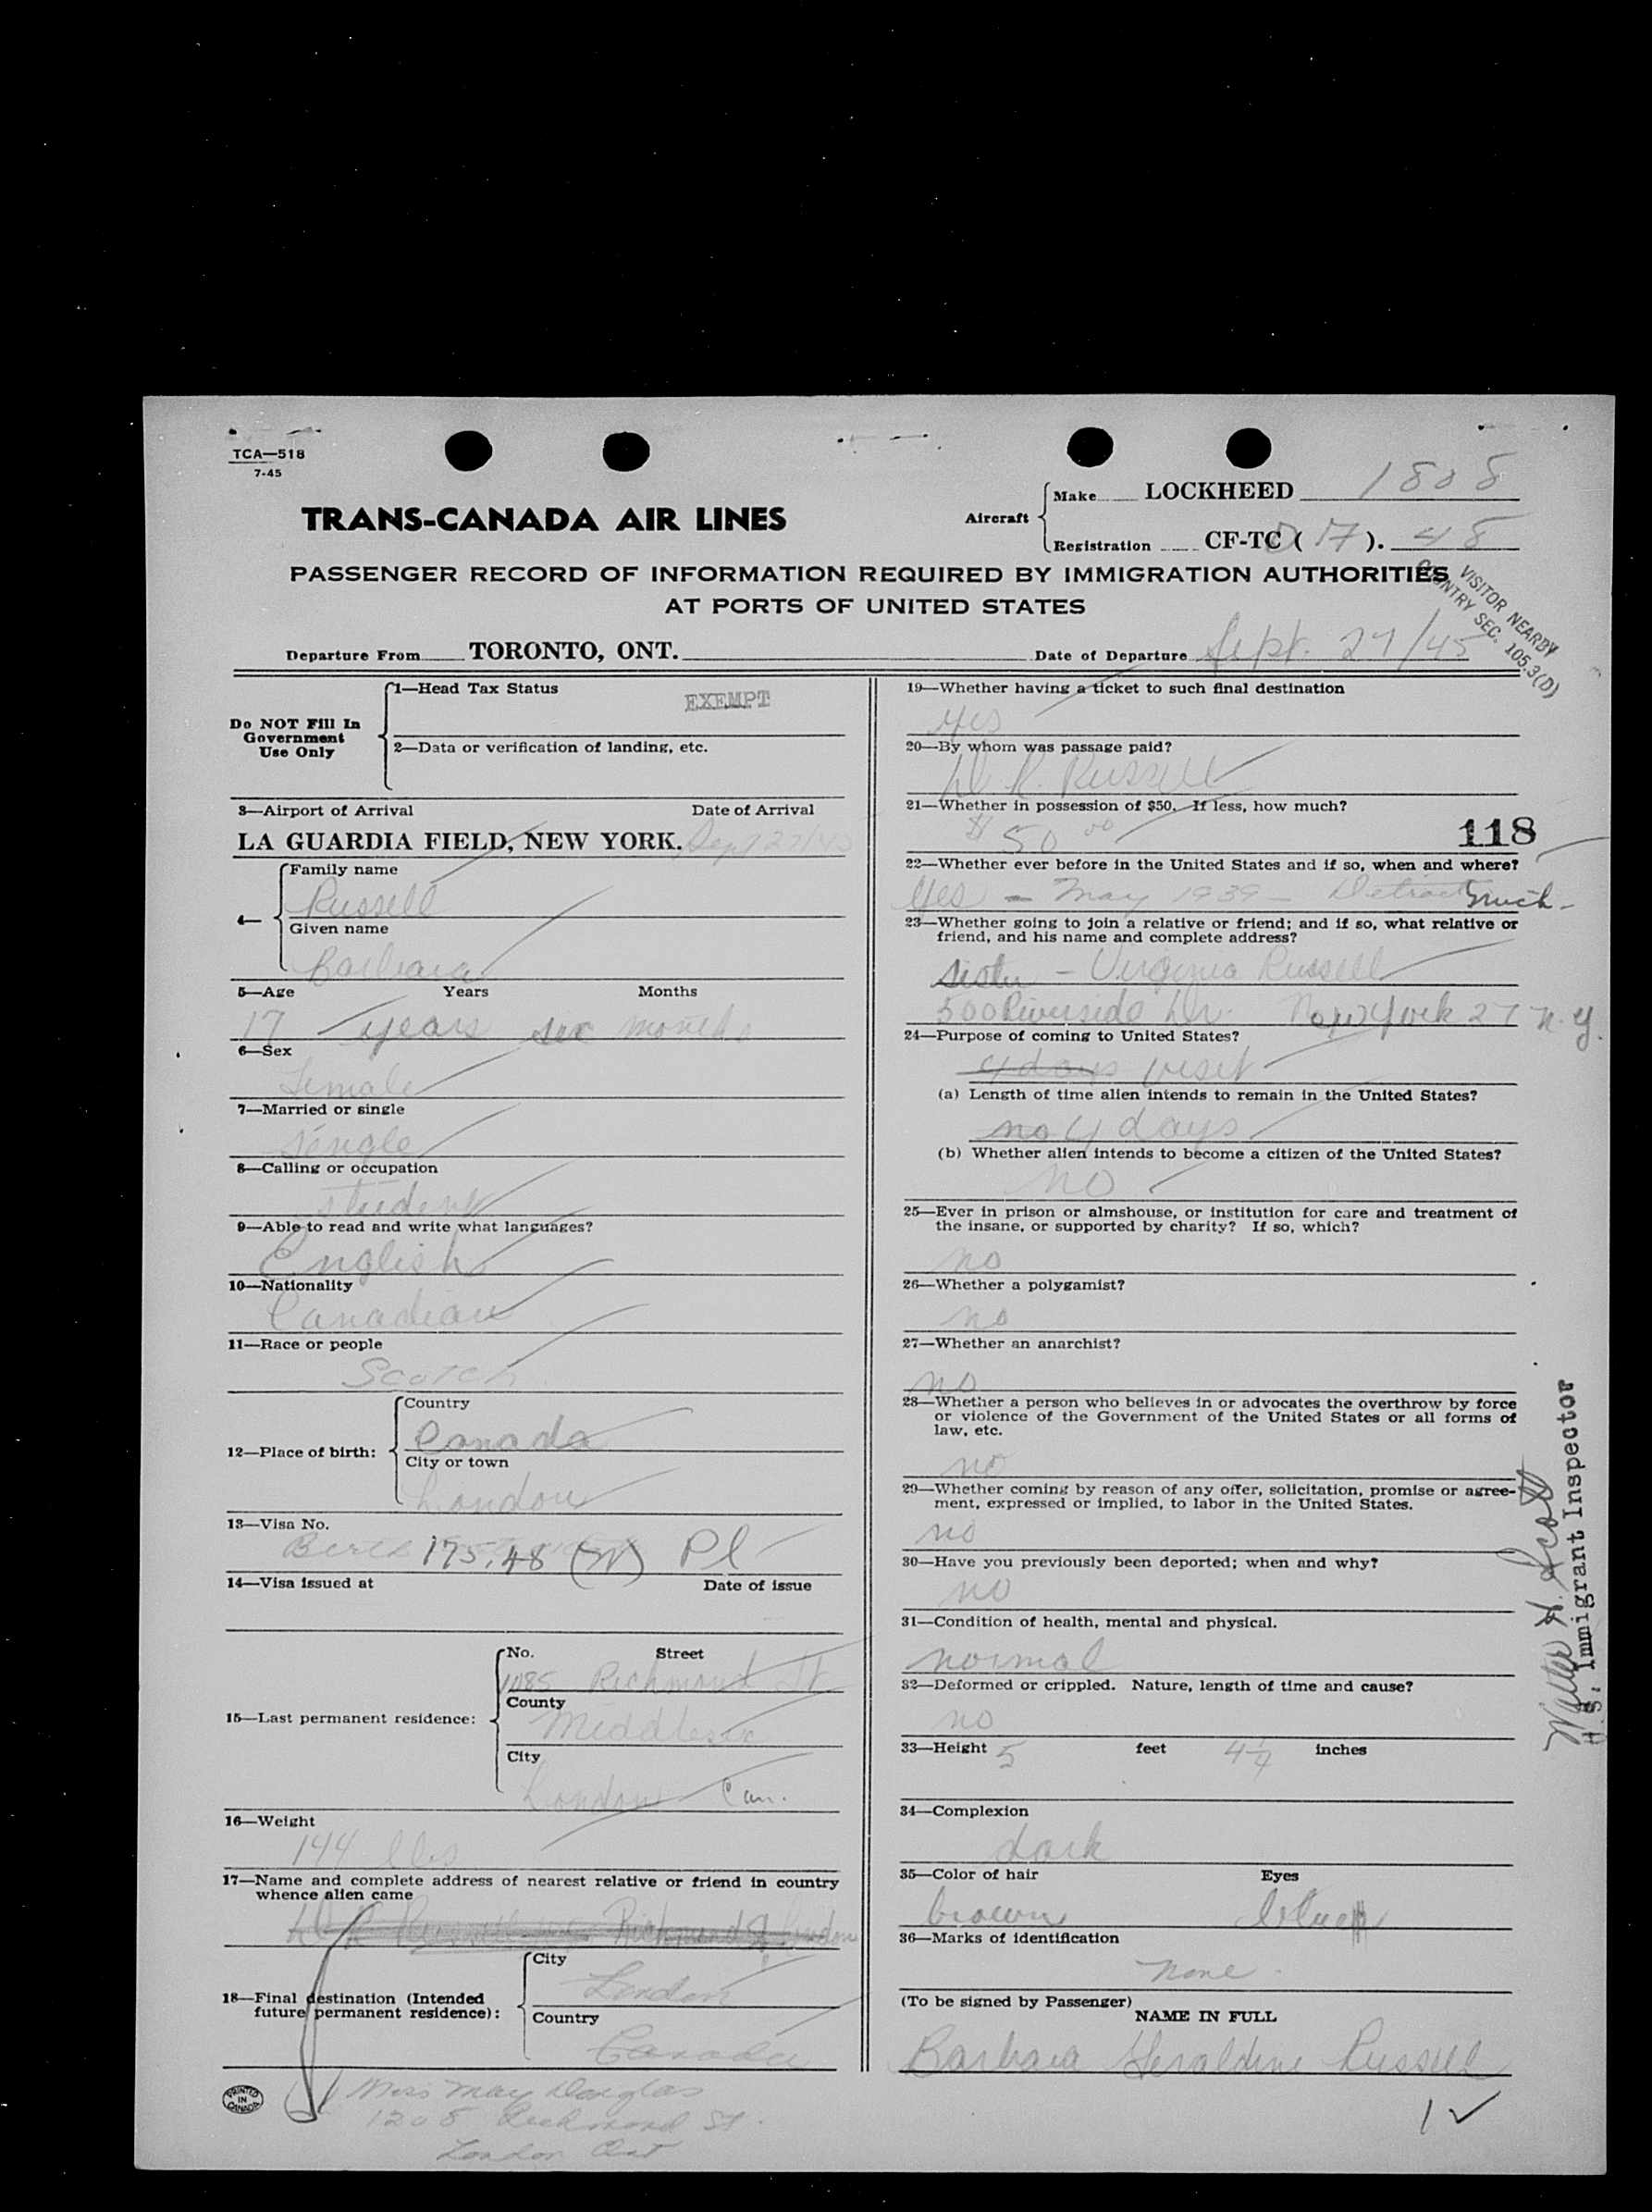 TCA—518
7-45
TRANS-CANADA AIR LINES
Aircraft
Make LOCKHEED 1808
Registration CF-TC ( 17 ). 48
PASSENGER RECORD OF INFORMATION REQUIRED BY IMMIGRATION AUTHORITIES
AT PORTS OF UNITED STATES
VISITOR NEARBY
COUNTRY SEC. 105.3(D)
Departure From TORONTO, ONT. Date of Departure Sept. 27/45
Do NOT Fill In
Government
Use Only
1—Head Tax Status
EXEMPT
2—Data or verification of landing, etc.
3—Airport of Arrival Date of Arrival
LA GUARDIA FIELD, NEW YORK. Sept 27/45
4—
Family name
Russell
Given name
Barbara
5—Age Years Months
17 years six months
6—Sex
Female
7—Married or single
Single
8—Calling or occupation
student
9—Able to read and write what languages?
English
10—Nationality
Canadian
11—Race or people
Scotch
12—Place of birth:
Country
Canada
City or town
London
13—Visa No.
175.48 Pl
14—Visa issued at Date of issue
15—Last permanent residence:
No. Street
1085 Richmond St
County
Middlesex
City
London Can.
16—Weight
144 lbs
17—Name and complete address of nearest relative or friend in country
whence alien came
Russell Richmond St. London
18—Final destination (Intended
future permanent residence):
City
London
Country
Canada
PRINTED
IN
CANADA
Miss May Douglas
1208 Richmond St.
London Ont
19—Whether having a ticket to such final destination
yes
20—By whom was passage paid?
R. Russell
21—Whether in possession of $50. If less, how much?
$50 00
118
22—Whether ever before in the United States and if so, when and where?
Yes — May 1939 — Detroit Mich —
23—Whether going to join a relative or friend; and if so, what relative or
friend, and his name and complete address?
sister — Virginia Russell
500 Riverside Dr. New York 27 N.Y.
24—Purpose of coming to United States?
4 days visit
(a) Length of time alien intends to remain in the United States?
no 4 days
(b) Whether alien intends to become a citizen of the United States?
NO
25—Ever in prison or almshouse, or institution for care and treatment of
the insane, or supported by charity? If so, which?
no
26—Whether a polygamist?
no
27—Whether an anarchist?
no
28—Whether a person who believes in or advocates the overthrow by force
or violence of the Government of the United States or all forms of
law, etc.
no
29—Whether coming by reason of any offer, solicitation, promise or agree-
ment, expressed or implied, to labor in the United States.
no
30—Have you previously been deported; when and why?
no
31—Condition of health, mental and physical.
normal
32—Deformed or crippled. Nature, length of time and cause?
no
33—Height 5 feet 4¼ inches
34—Complexion
dark
35—Color of hair Eyes
brown blue
36—Marks of identification
none.
(To be signed by Passenger)
NAME IN FULL
Barbara Geraldine Russell
1 ✓
Walter H. Scott
U.S. Immigrant Inspector